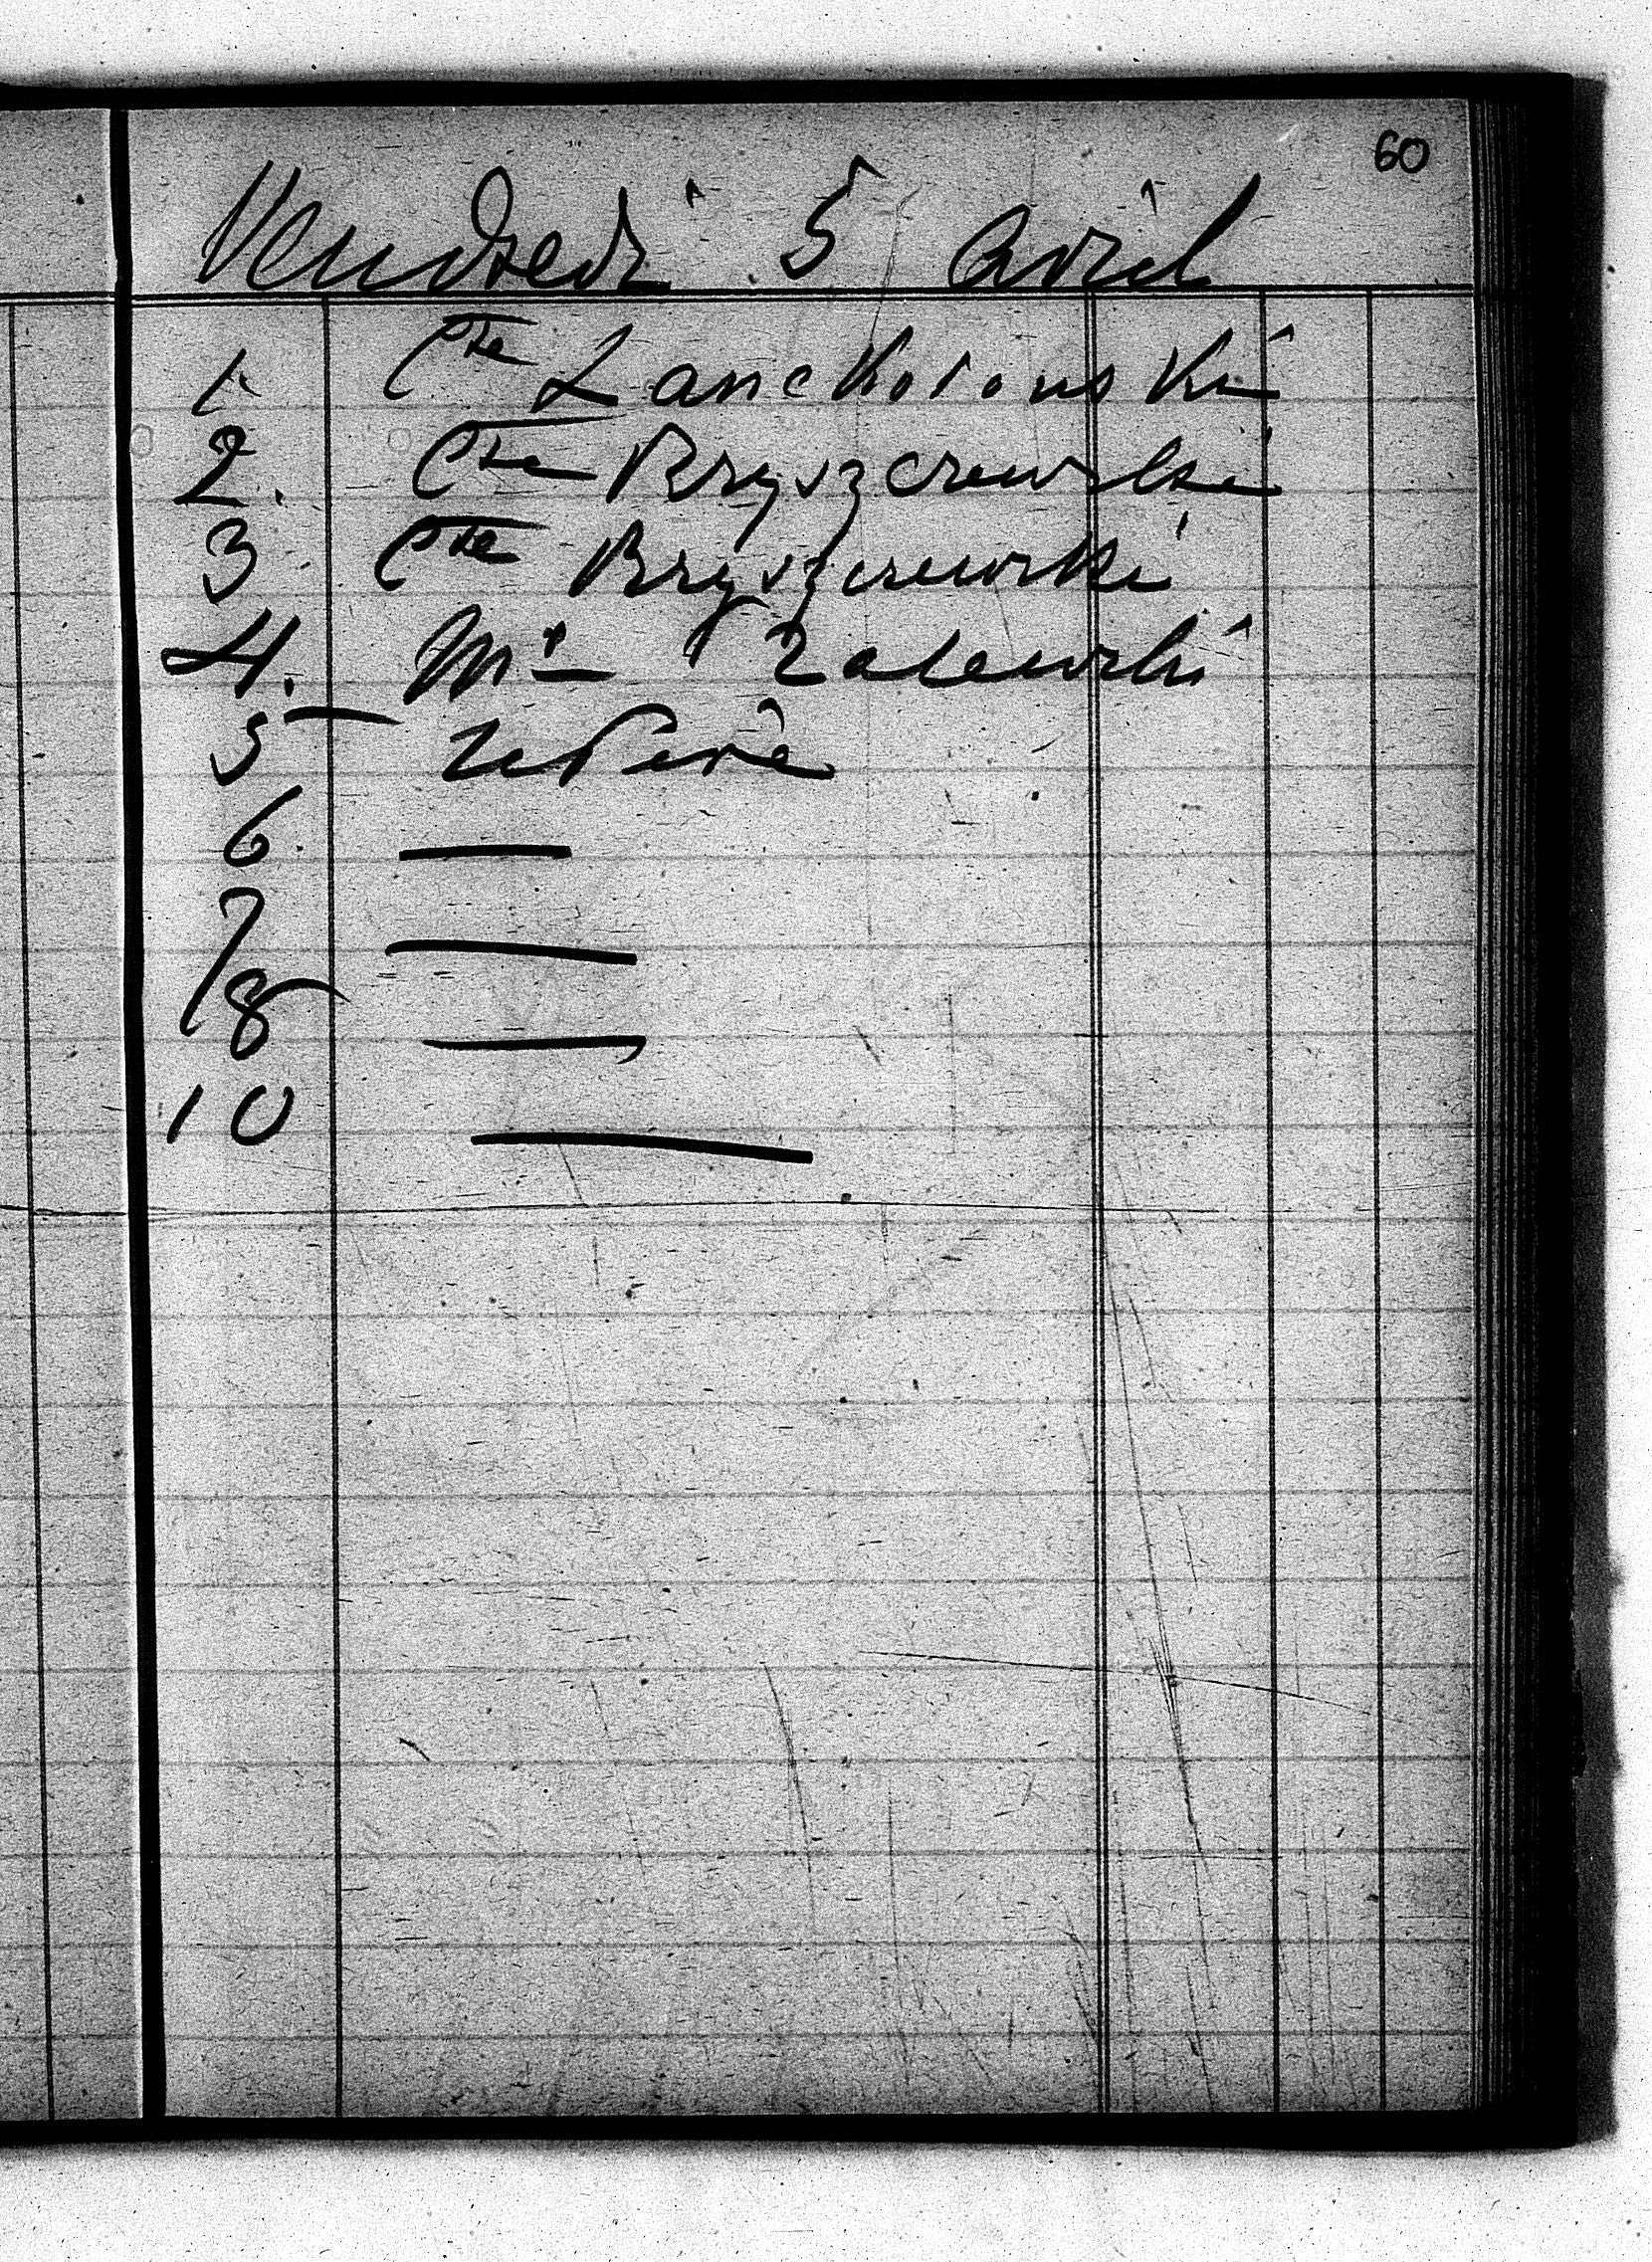 60
Vendredi 5 avril
1. Cte Lanckoronski
2. Cte Bryszczewski
3. Cte Bryszczewski
4. Mr Zalewski
5
6. —
7 —
8 —
10 —